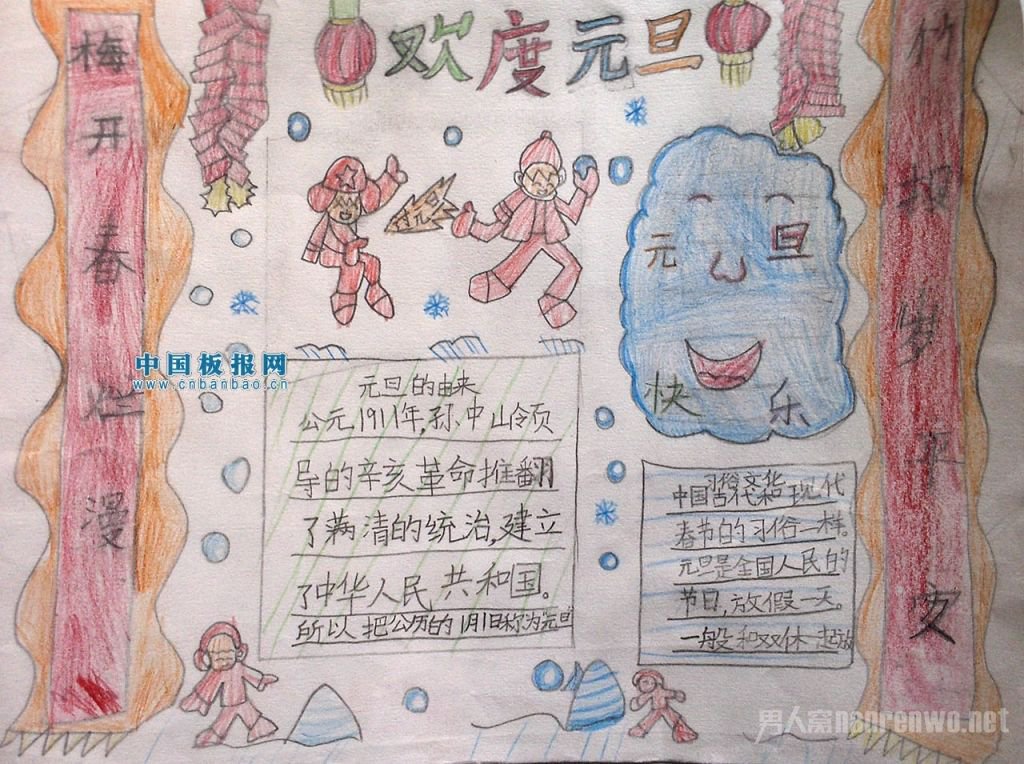 欢度元旦
梅开春烂漫
竹报岁平安
元旦
快乐
中国板报网
www.cnbanbao.cn
元旦的由来
公元1911年,孙中山领导
导的辛亥革命推翻
了满清的统治,建立
了中华人民共和国。
所以把公历的1月1日称为元旦
习俗文化
中国古代和现代
春节的习俗一样。
元旦是全国人民的
节日,放假一天。
一般和双休一起放
男人窝nanrenwo.net